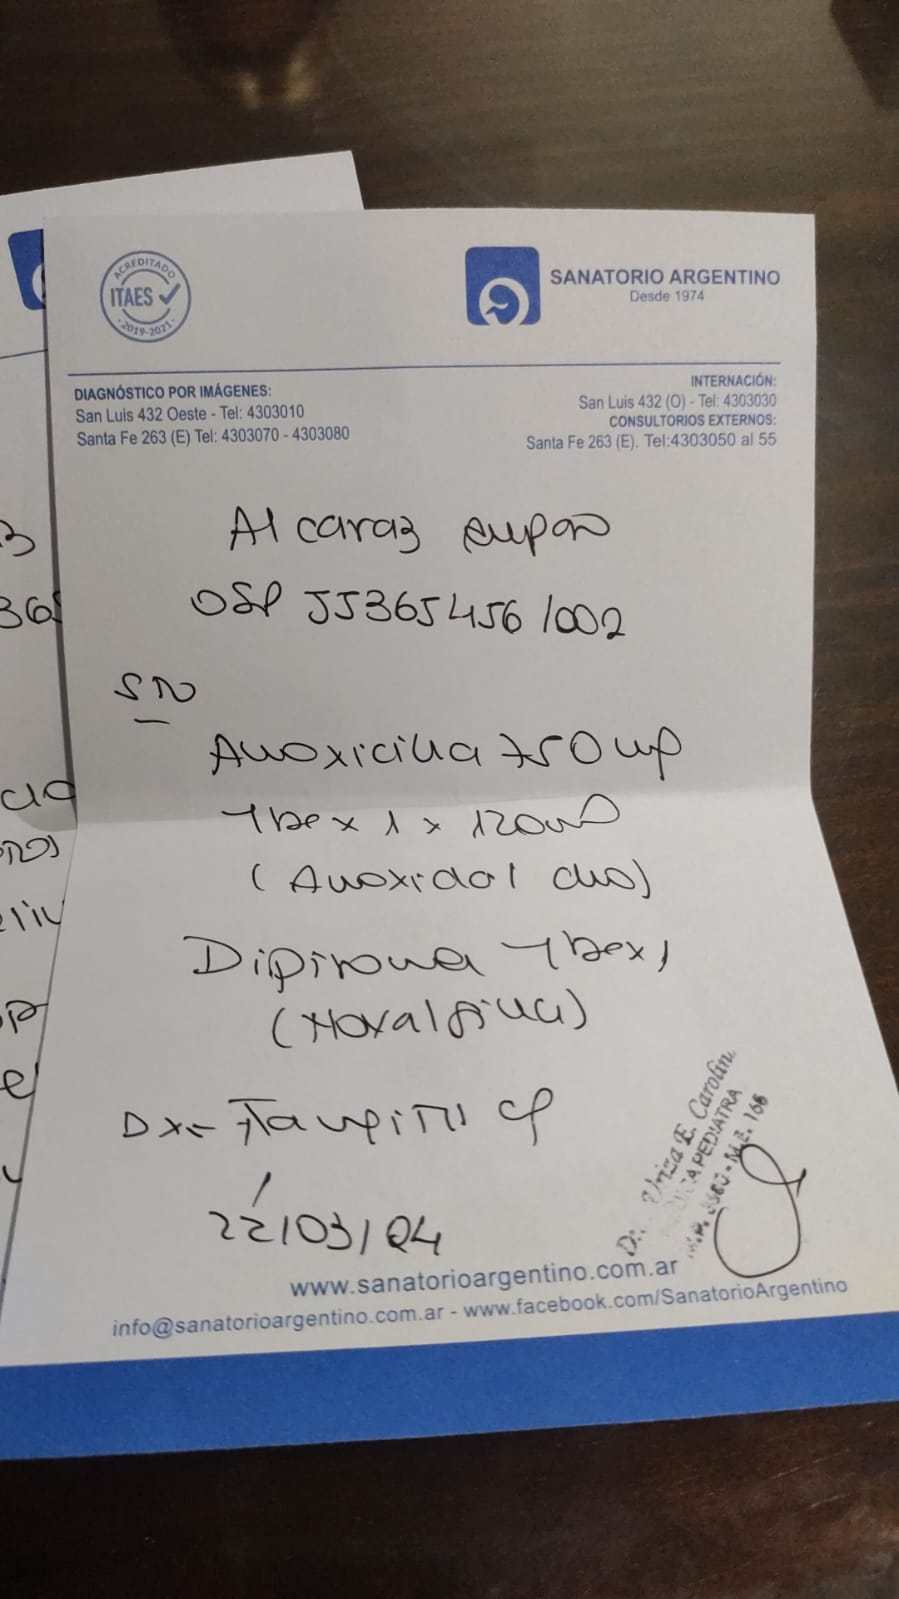 ACREDITADO
ITAES
2019-2021
SANATORIO ARGENTINO
Desde 1974
DIAGNÓSTICO POR IMÁGENES:
San Luis 432 Oeste - Tel: 4303010
Santa Fe 263 (E) Tel: 4303070 - 4303080
INTERNACIÓN:
San Luis 432 (O) - Tel: 4303030
CONSULTORIOS EXTERNOS:
Santa Fe 263 (E). Tel:4303050 al 55
Alcaraz
OSP 55365456/002
Amoxicilina 750 mg
x 1 x 120ml
(Amoxidal duo)
Dipirona x 1
(Novalgina)
Dx=
22/03/24
Uriza E. Carolin
PEDIATRA
www.sanatorioargentino.com.ar
info@sanatorioargentino.com.ar - www.facebook.com/SanatorioArgentino